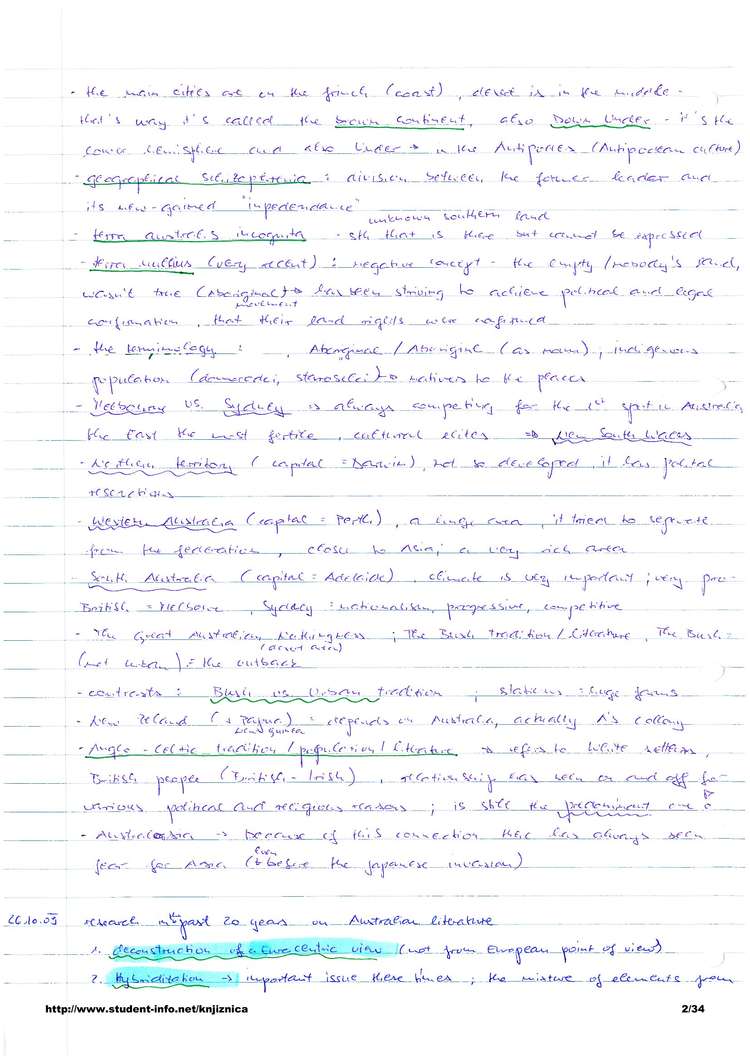 - the main cities are on the fringe (coast), desert is in the middle -
that's way it's called the brown continent, also Down Under - it's the
lower hemisphere and also Under → in the Antipodes (Antipodean culture)
- geographical schizophrenia : division between the former leader and
its new-gained "inpedendance"
unknown southern land
- terra australis incognita - sth that is there but cannot be expressed
- terra nullius (very recent) : negative concept - the empty / nobody's land,
wasn't true (Aboriginal) → has been striving to achieve political and legal
movement
confirmation, that their land rights were confirmed
- the terminology : , Aboriginal / Aborigine (as noun), indigenous
population (domorodci, staroselci) → natives to the places
- Melbourne vs. Sydney is always competing for the 1st spot in Australia,
the East the most fertile, cultural elites ⇒ New South Wales
- Northern territory (capital = Darwin), not so developed, it has political
- Western Australia (capital = Perth), a huge area, it tried to seperate
from the federation, close to Asia; a very rich area
- South Australia (capital = Adelaide), climate is very important; very pro-
British = Melborne, Sydney : nationalism, progressive, competitive
- The Great Australian Nothingness ; The Bush tradition / literature, The Bush =
(desert area)
(not urban) = the outback
- contrasts : Bush vs. Urban tradition ; stations : huge farms
- New Zeland (+ Papua) = depends on Australia, actually A's collony
New Guinea
- Anglo - Celtic tradition / population / literature → refers to White settlers,
British people (British - Irish), relationship has been on and off for
various political and religious reasons ; is still the predominant one
- Australasia → because of this connection there has always been
even
fear for Asia (before the Japanese invasion)
26.10.05 research in the past 20 years on Australian literature
1. deconstruction of a Eurocentric view (not from European point of view)
2. Hybriditation → important issue these times ; the mixture of elements from
http://www.student-info.net/knjiznica 2/34